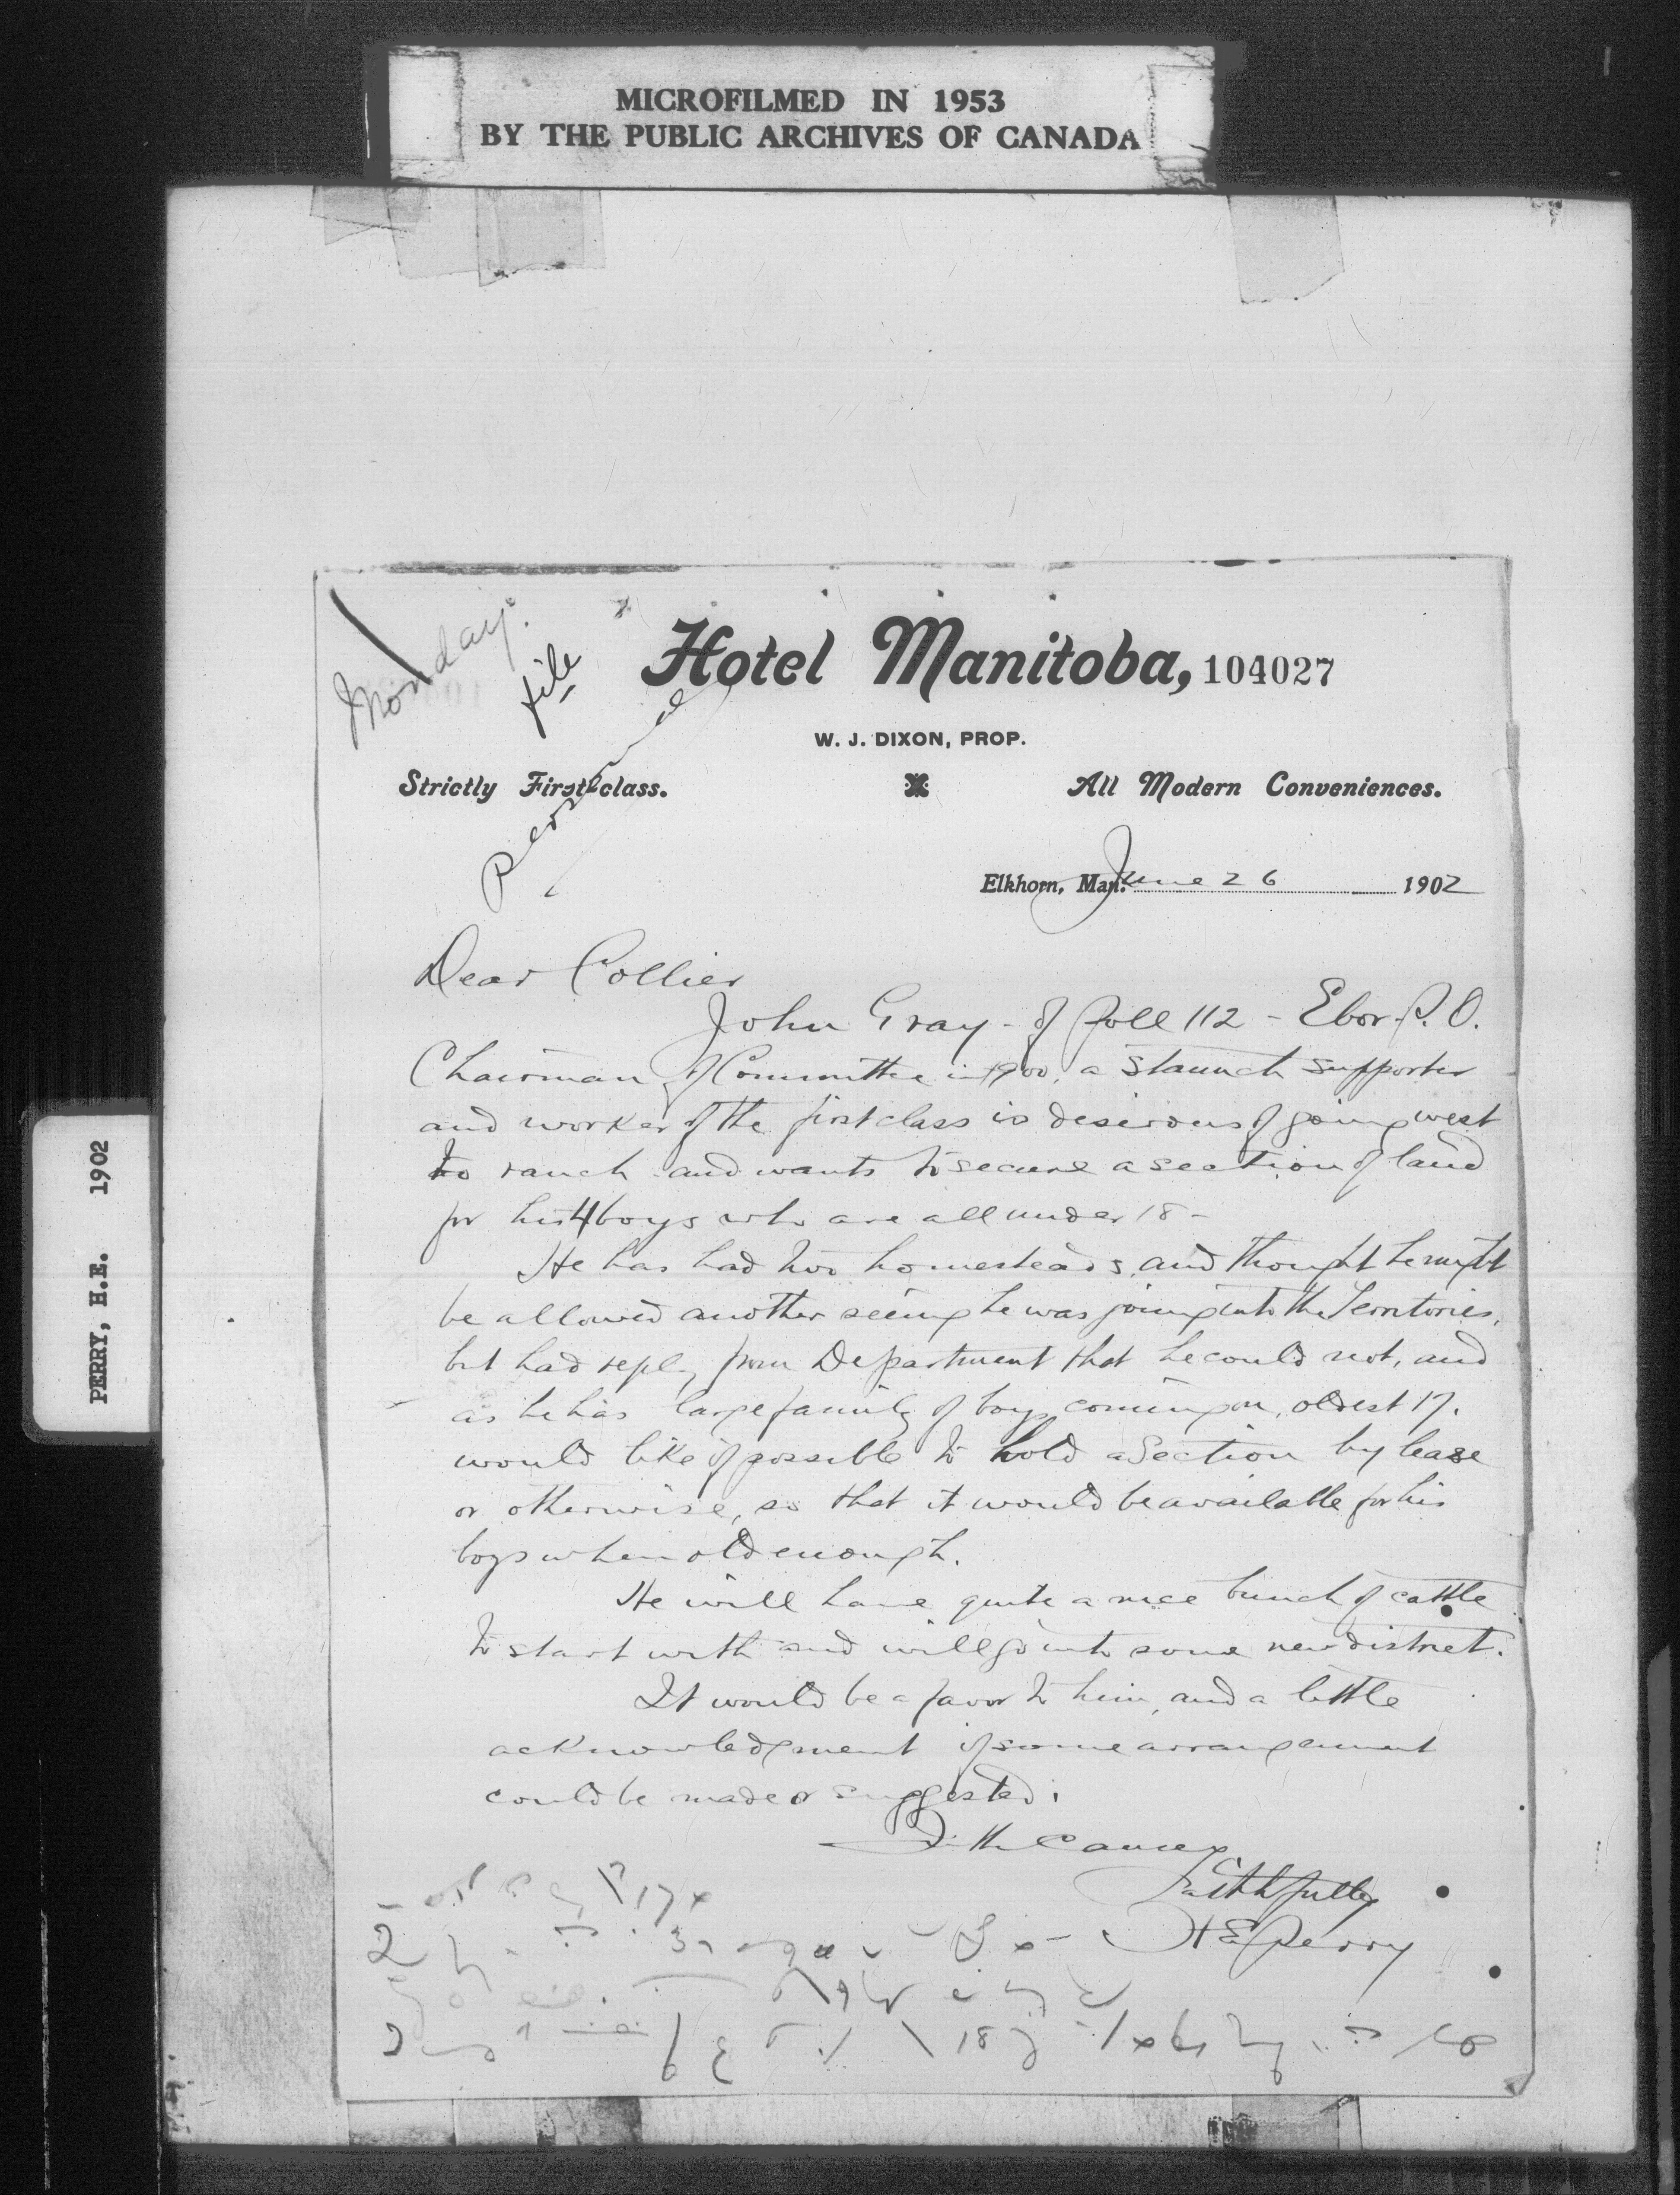 MICROFILMED IN 1953
BY THE PUBLIC ARCHIVES OF CANADA
PERRY, H.E. 1902
Monday.
file
Personal
Hotel Manitoba, 104027
W. J. DIXON, PROP.
Strictly First-class. All Modern Conveniences.
Elkhorn, Man. June 26 1902
Dear Collier
John Gray - of Poll 112 - Ebor P.O.
Chairman of Committee in 1900, a staunch supporter
and worker of the first class is desirous of going west
to ranch and wants to secure a section of land
for his 4 boys who are all under 18 -
He has had two homesteads, and thought he might
be allowed another seeing he was going into the Territories,
but had reply from Department that he could not, and
as he has large family of boys coming on, oldest 17.
would like if possible to hold a Section by lease
or otherwise, so that it would be available for his
boys when old enough.
He will have quite a nice bunch of cattle
to start with and will go into some new district.
It would be a favor to him, and a little
acknowledgment if some arrangement
could be made or suggested.
In the Cause
Faithfully
H E Perry